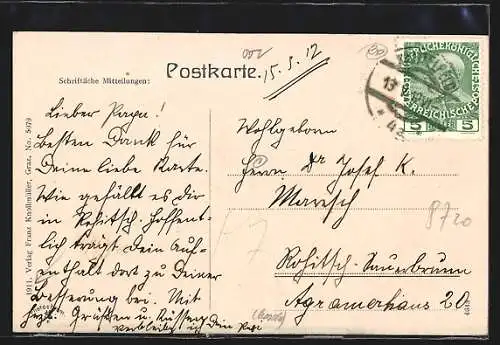 002
Postkarte.
15.5.12
Schriftliche Mitteilungen:
Lieber Papa!
Besten Dank für
Deine liebe Karte.
Wie gefällt es dir
in Rohitsch. Hoffent-
lich trägt Dein Auf-
enthalt dort zu Deiner
Besserung bei. Mit
herzl. Grüßen u. Küssen
verbleibe ich Dein
Wohlgeboren
Herrn Dr Josef K.
Maresch
Rohitsch-Sauerbrunn
Agramerhaus 20
8720
1911. Verlag Franz Knollmüller, Graz. No. 5079
5 5
13